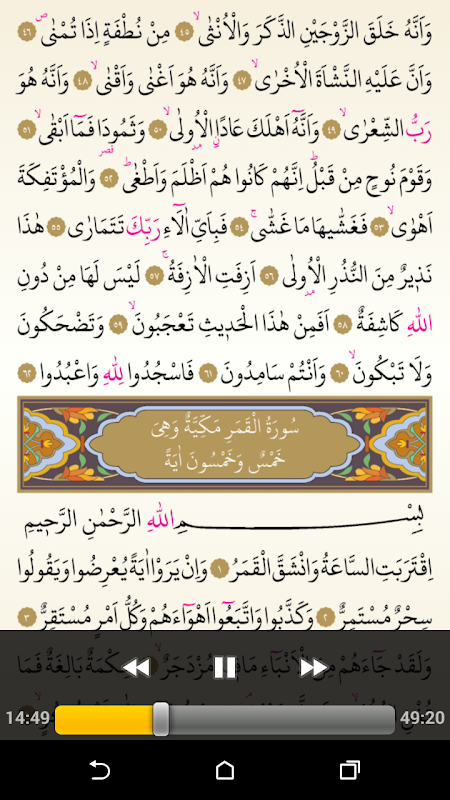 وَاَنَّهُ خَلَقَ الزَّوْجَيْنِ الذَّكَرَ وَالْاُنْثٰىۙ ﴿٤٥﴾ مِنْ نُطْفَةٍ اِذَا تُمْنٰىۖ ﴿٤٦﴾
وَاَنَّ عَلَيْهِ النَّشْاَةَ الْاُخْرٰىۙ ﴿٤٧﴾ وَاَنَّهُ هُوَ اَغْنٰى وَاَقْنٰىۙ ﴿٤٨﴾ وَاَنَّهُ هُوَ
رَبُّ الشِّعْرٰىۙ ﴿٤٩﴾ وَاَنَّهُٓ اَهْلَكَ عَادًاۨ الْاُو۫لٰىۙ ﴿٥٠﴾ وَثَمُودَا۬ فَمَٓا اَبْقٰىۙ ﴿٥١﴾
وَقَوْمَ نُوحٍ مِنْ قَبْلُۜ اِنَّهُمْ كَانُوا هُمْ اَظْلَمَ وَاَطْغٰىۜ ﴿٥٢﴾ وَالْمُؤْتَفِكَةَ
اَهْوٰىۙ ﴿٥٣﴾ فَغَشّٰيهَا مَا غَشّٰىۚ ﴿٥٤﴾ فَبِاَيِّ اٰلَٓاءِ رَبِّكَ تَتَمَارٰى ﴿٥٥﴾ هٰذَا
نَذ۪يرٌ مِنَ النُّذُرِ الْاُو۫لٰى ﴿٥٦﴾ اَزِفَتِ الْاٰزِفَةُۚ ﴿٥٧﴾ لَيْسَ لَهَا مِنْ دُونِ
اللّٰهِ كَاشِفَةٌ ﴿٥٨﴾ اَفَمِنْ هٰذَا الْحَد۪يثِ تَعْجَبُونَۙ ﴿٥٩﴾ وَتَضْحَكُونَ
وَلَا تَبْكُونَۙ ﴿٦٠﴾ وَاَنْتُمْ سَامِدُونَ ﴿٦١﴾ فَاسْجُدُوا لِلّٰهِ وَاعْبُدُوا ﴿٦٢﴾
سُورَةُ الْقَمَرِ مَكِّيَّةٌ وَهِىَ
خَمْسٌ وَخَمْسُونَ اٰيَةً
بِسْمِ اللّٰهِ الرَّحْمٰنِ الرَّح۪يمِ
اِقْتَرَبَتِ السَّاعَةُ وَانْشَقَّ الْقَمَرُ ﴿١﴾ وَاِنْ يَرَوْا اٰيَةً يُعْرِضُوا وَيَقُولُوا
سِحْرٌ مُسْتَمِرٌّ ﴿٢﴾ وَكَذَّبُوا وَاتَّبَعُٓوا اَهْوَٓاءَهُمْ وَكُلُّ اَمْرٍ مُسْتَقِرٌّ ﴿٣﴾
وَلَقَدْ جَٓاءَهُمْ مِنَ الْاَنْبَٓاءِ مَا ف۪يهِ مُزْدَجَرٌۙ حِكْمَةٌ بَالِغَةٌ فَمَا
14:49 49:20